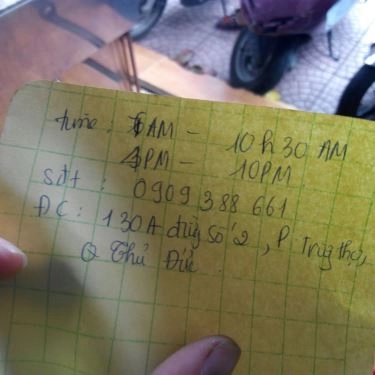 time: 6AM - 10h30 AM
4PM - 10PM
sđt: 0909 388 661
ĐC: 130A đường số 2, P. Trường thọ,
Q Thủ Đức.